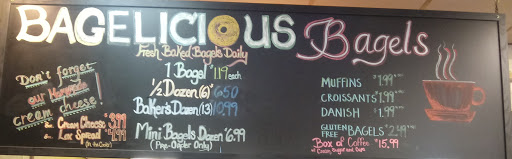 BAGELICIOUS Bagels
Fresh Baked Bagels Daily
1 Bagel $1.19 each
1/2 Dozen (6) $6.50
Baker's Dozen (13) 10.99
Mini Bagels Dozen $6.99
(Pre-Order Only)
Don't forget
our Homemade
cream cheese!
Cream Cheese $3.99
Lox Spread $4.99
MUFFINS $1.99
CROISSANTS $1.99
DANISH $1.99
GLUTEN FREE BAGELS $2.49
Box of Coffee $15.99
w/ Cream, Sugar and Cups